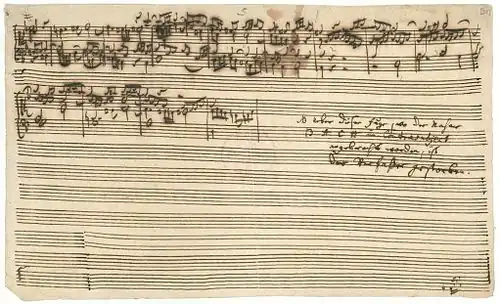 ueber dieser Fuge, wo der Nahme
B A C H im Contrasubject
angebracht worden, ist
der Verfaßer gestorben.